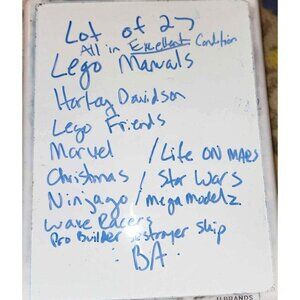 Lot of 27
All in Excellent Condition
Lego Manuals
Harley Davidson
Lego Friends
Marvel / Life ON MARS
Christmas / Star Wars
Ninjago / mega modelz
Wave Racers
Pro Builder Destroyer Ship
BA
BRANDS